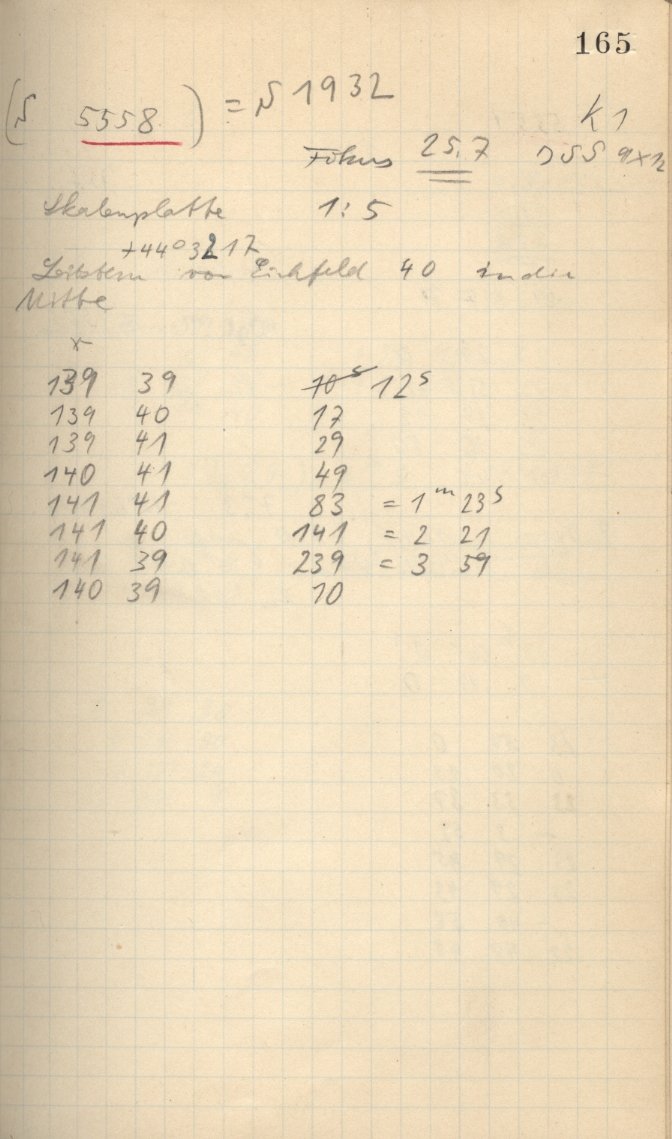 165
(S 5558) = S 1932
K 1
Fokus 25,7 JSS 9x12
Skalenplatte 1:5
+44°3217
Leitstern von Eichfeld 40 in die
Mitte
x
139 39 10s 12s
139 40 17
139 41 29
140 41 49
141 41 83 = 1m 23s
141 40 141 = 2 21
141 39 239 = 3 59
140 39 10